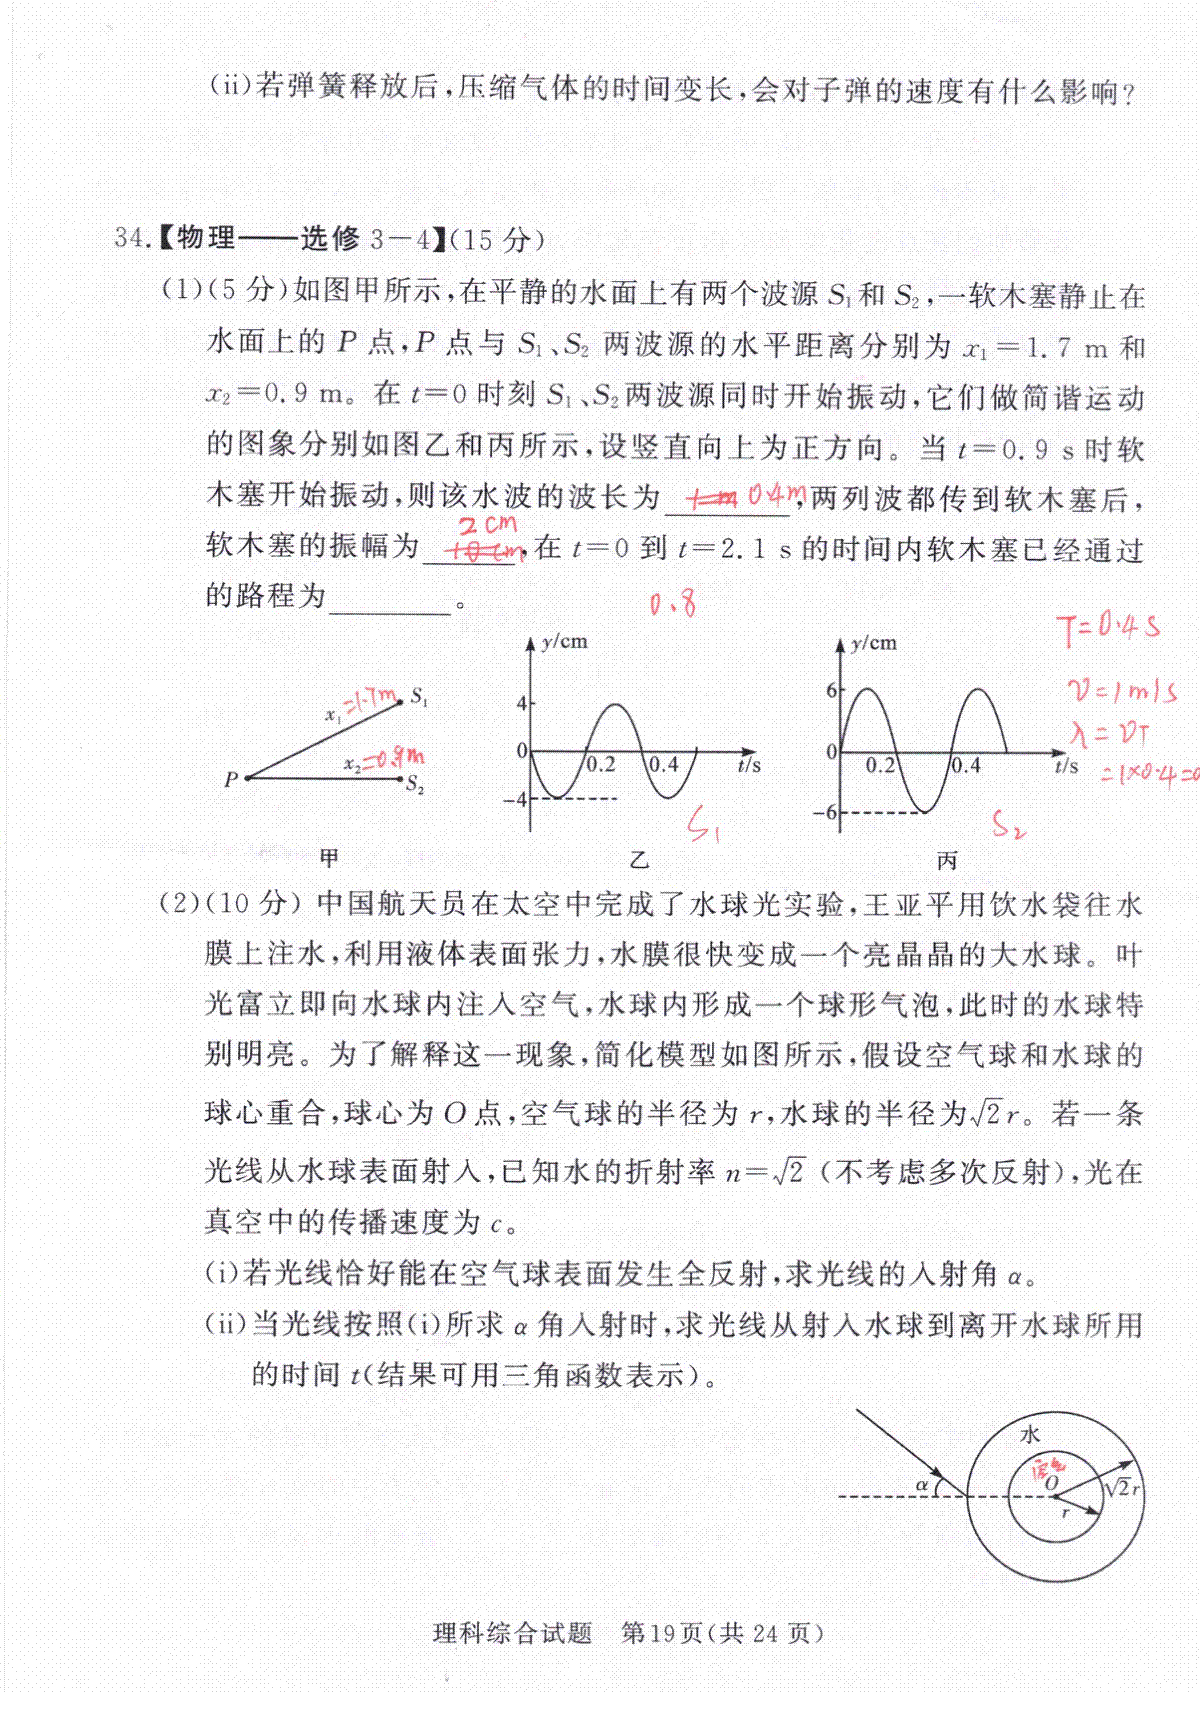 (ii)若弹簧释放后,压缩气体的时间变长,会对子弹的速度有什么影响?
34.【物理——选修 3-4】(15 分)
(1)(5 分)如图甲所示,在平静的水面上有两个波源 S₁和 S₂,一软木塞静止在
水面上的 P 点,P 点与 S₁、S₂ 两波源的水平距离分别为 x₁=1.7 m 和
x₂=0.9 m。在 t=0 时刻 S₁、S₂两波源同时开始振动,它们做简谐运动
的图象分别如图乙和丙所示,设竖直向上为正方向。当 t=0.9 s 时软
木塞开始振动,则该水波的波长为 1m 0.4m,两列波都传到软木塞后,
2cm
软木塞的振幅为 10cm,在 t=0 到 t=2.1 s 的时间内软木塞已经通过
的路程为________。
0.8
T=0.4s
v=1m/s
λ=vT
=1×0.4=0
P x₁=1.7m S₁
x₂=0.9m S₂
甲
y/cm
4
0 0.2 0.4 t/s
-4
S₁
乙
y/cm
6
0 0.2 0.4 t/s
-6
S₂
丙
(2)(10 分) 中国航天员在太空中完成了水球光实验,王亚平用饮水袋往水
膜上注水,利用液体表面张力,水膜很快变成一个亮晶晶的大水球。叶
光富立即向水球内注入空气,水球内形成一个球形气泡,此时的水球特
别明亮。为了解释这一现象,简化模型如图所示,假设空气球和水球的
球心重合,球心为 O 点,空气球的半径为 r,水球的半径为√2 r。若一条
光线从水球表面射入,已知水的折射率 n=√2 (不考虑多次反射),光在
真空中的传播速度为 c。
(i)若光线恰好能在空气球表面发生全反射,求光线的入射角 α。
(ii)当光线按照(i)所求 α 角入射时,求光线从射入水球到离开水球所用
的时间 t(结果可用三角函数表示)。
水
空气
α O √2 r
r
理科综合试题 第19页(共 24 页)